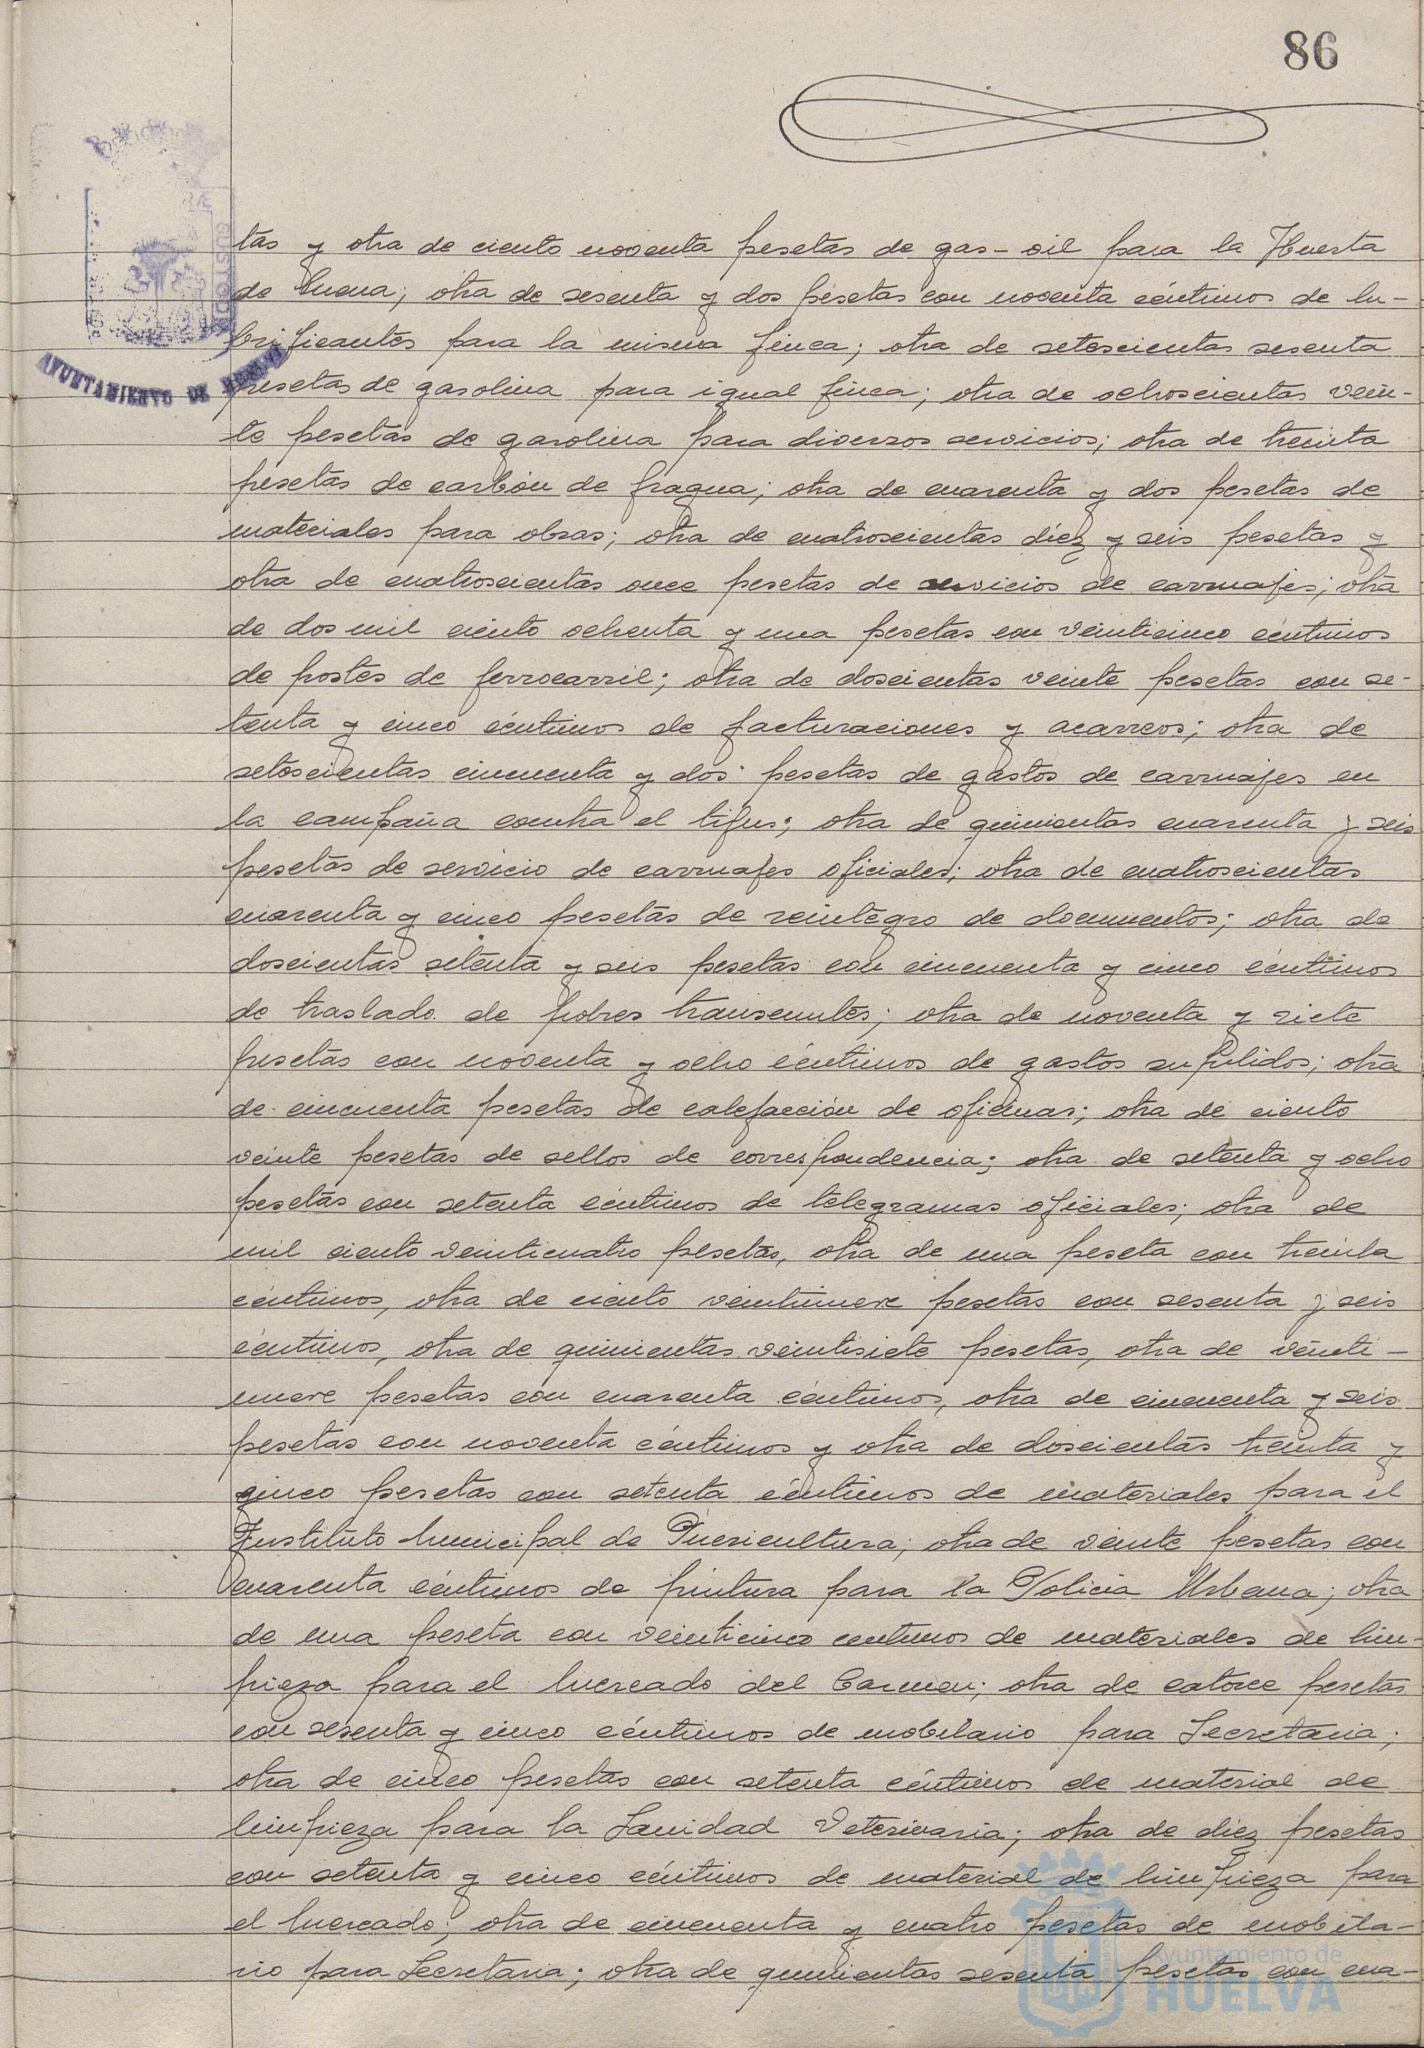 86
AYUNTAMIENTO DE HUELVA
tas y otra de ciento noventa pesetas de gas-oil para la Huerta
de Mena; otra de sesenta y dos pesetas con noventa céntimos de lu-
brificantes para la misma finca; otra de setescientas sesenta
pesetas de gasolina para igual finca; otra de ochoscientas vein-
te pesetas de gasolina para diversos servicios; otra de treinta
pesetas de carbón de fragua; otra de cuarenta y dos pesetas de
materiales para obras; otra de cuatroscientas diéz y seis pesetas y
otra de cuatroscientas once pesetas de servicios de carruajes; otra
de dos mil ciento ochenta y una pesetas con veinticinco céntimos
de postes de ferrocarril; otra de doscientas veinte pesetas con se-
tenta y cinco céntimos de facturaciones y acarreos; otra de
setescientas cincuenta y dos pesetas de gastos de carruajes en
la campaña contra el tifus; otra de quinientas cuarenta y seis
pesetas de servicio de carruajes oficiales; otra de cuatroscientas
cuarenta y cinco pesetas de reintegro de documentos; otra de
doscientas setenta y seis pesetas con cincuenta y cinco céntimos
de traslado de pobres transeuntes; otra de noventa y siete
pesetas con noventa y ocho céntimos de gastos suplidos; otra
de cincuenta pesetas de calefacción de oficinas; otra de ciento
veinte pesetas de sellos de correspondencia; otra de setenta y ocho
pesetas con setenta céntimos de telegramas oficiales; otra de
mil ciento veinticuatro pesetas, otra de una peseta con treinta
céntimos, otra de ciento veintinueve pesetas con sesenta y seis
céntimos, otra de quinientas veintisiete pesetas, otra de veinti-
nueve pesetas con cuarenta céntimos, otra de cincuenta y seis
pesetas con noventa céntimos y otra de doscientas treinta y
cinco pesetas con setenta céntimos de materiales para el
Instituto Municipal de Puericultura; otra de veinte pesetas con
cuarenta céntimos de pintura para la Policía Urbana; otra
de una peseta con veinticinco centimos de materiales de lim-
pieza para el Mercado del Carmen; otra de catorce pesetas
con sesenta y cinco céntimos de mobilario para Secretaria;
otra de cinco pesetas con setenta céntimos de material de
limpieza para la Sanidad Veterinaria; otra de diez pesetas
con setenta y cinco céntimos de material de limpieza para
el Mercado; otra de cincuenta y cuatro pesetas de mobila-
rio para Secretaria; otra de quinientas sesenta pesetas con cua-
Ayuntamiento de
HUELVA